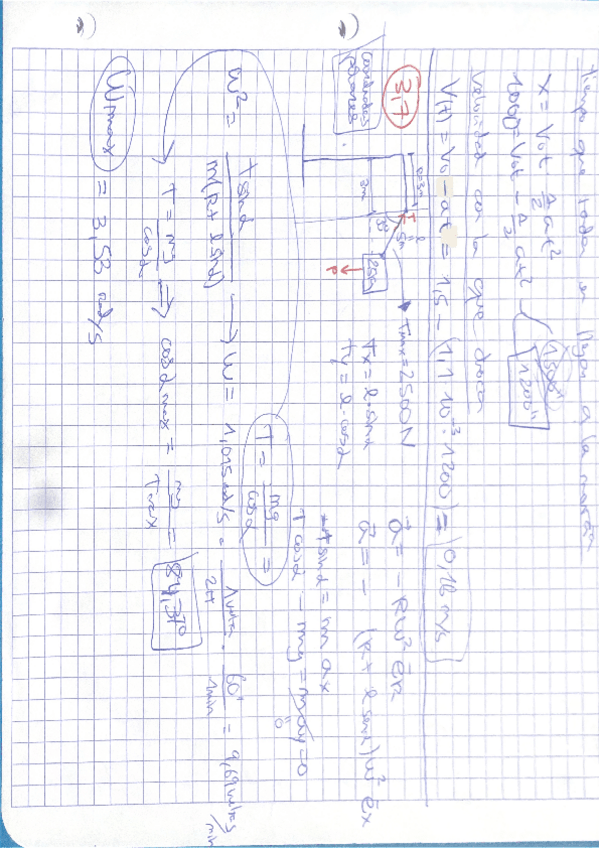 Tiempo que tarda en llegar a la
X = V₀t - 1/2 at²
1000 = V₀t - 1/2 at²
1200"
Velocidad con la que choca
V(t) = V₀ - at = 1,5 - (1,1·10⁻³·1200) = 0,18 m/s
3,7
Coordenadas polares
3m
5m
l
T
25kg
P
Tmax = 2500N
Tx = l·sinα
Ty = l·cosα
a = -Rω² eR
a = - (R + l sinα)ω² ex
-Tsinα = m ax
Tcosα - mg = may = 0
T = mg/cosα =
ω² = T sinα / m(R + l sinα) → ω = 1,015 rad/s · 1 vuelta/2π · 60"/1min = 9,69 vueltas/min
T = mg/cosα ⇒ cosα max = mg/Tmax = 84,37°
ωmax = 3,53 rad/s